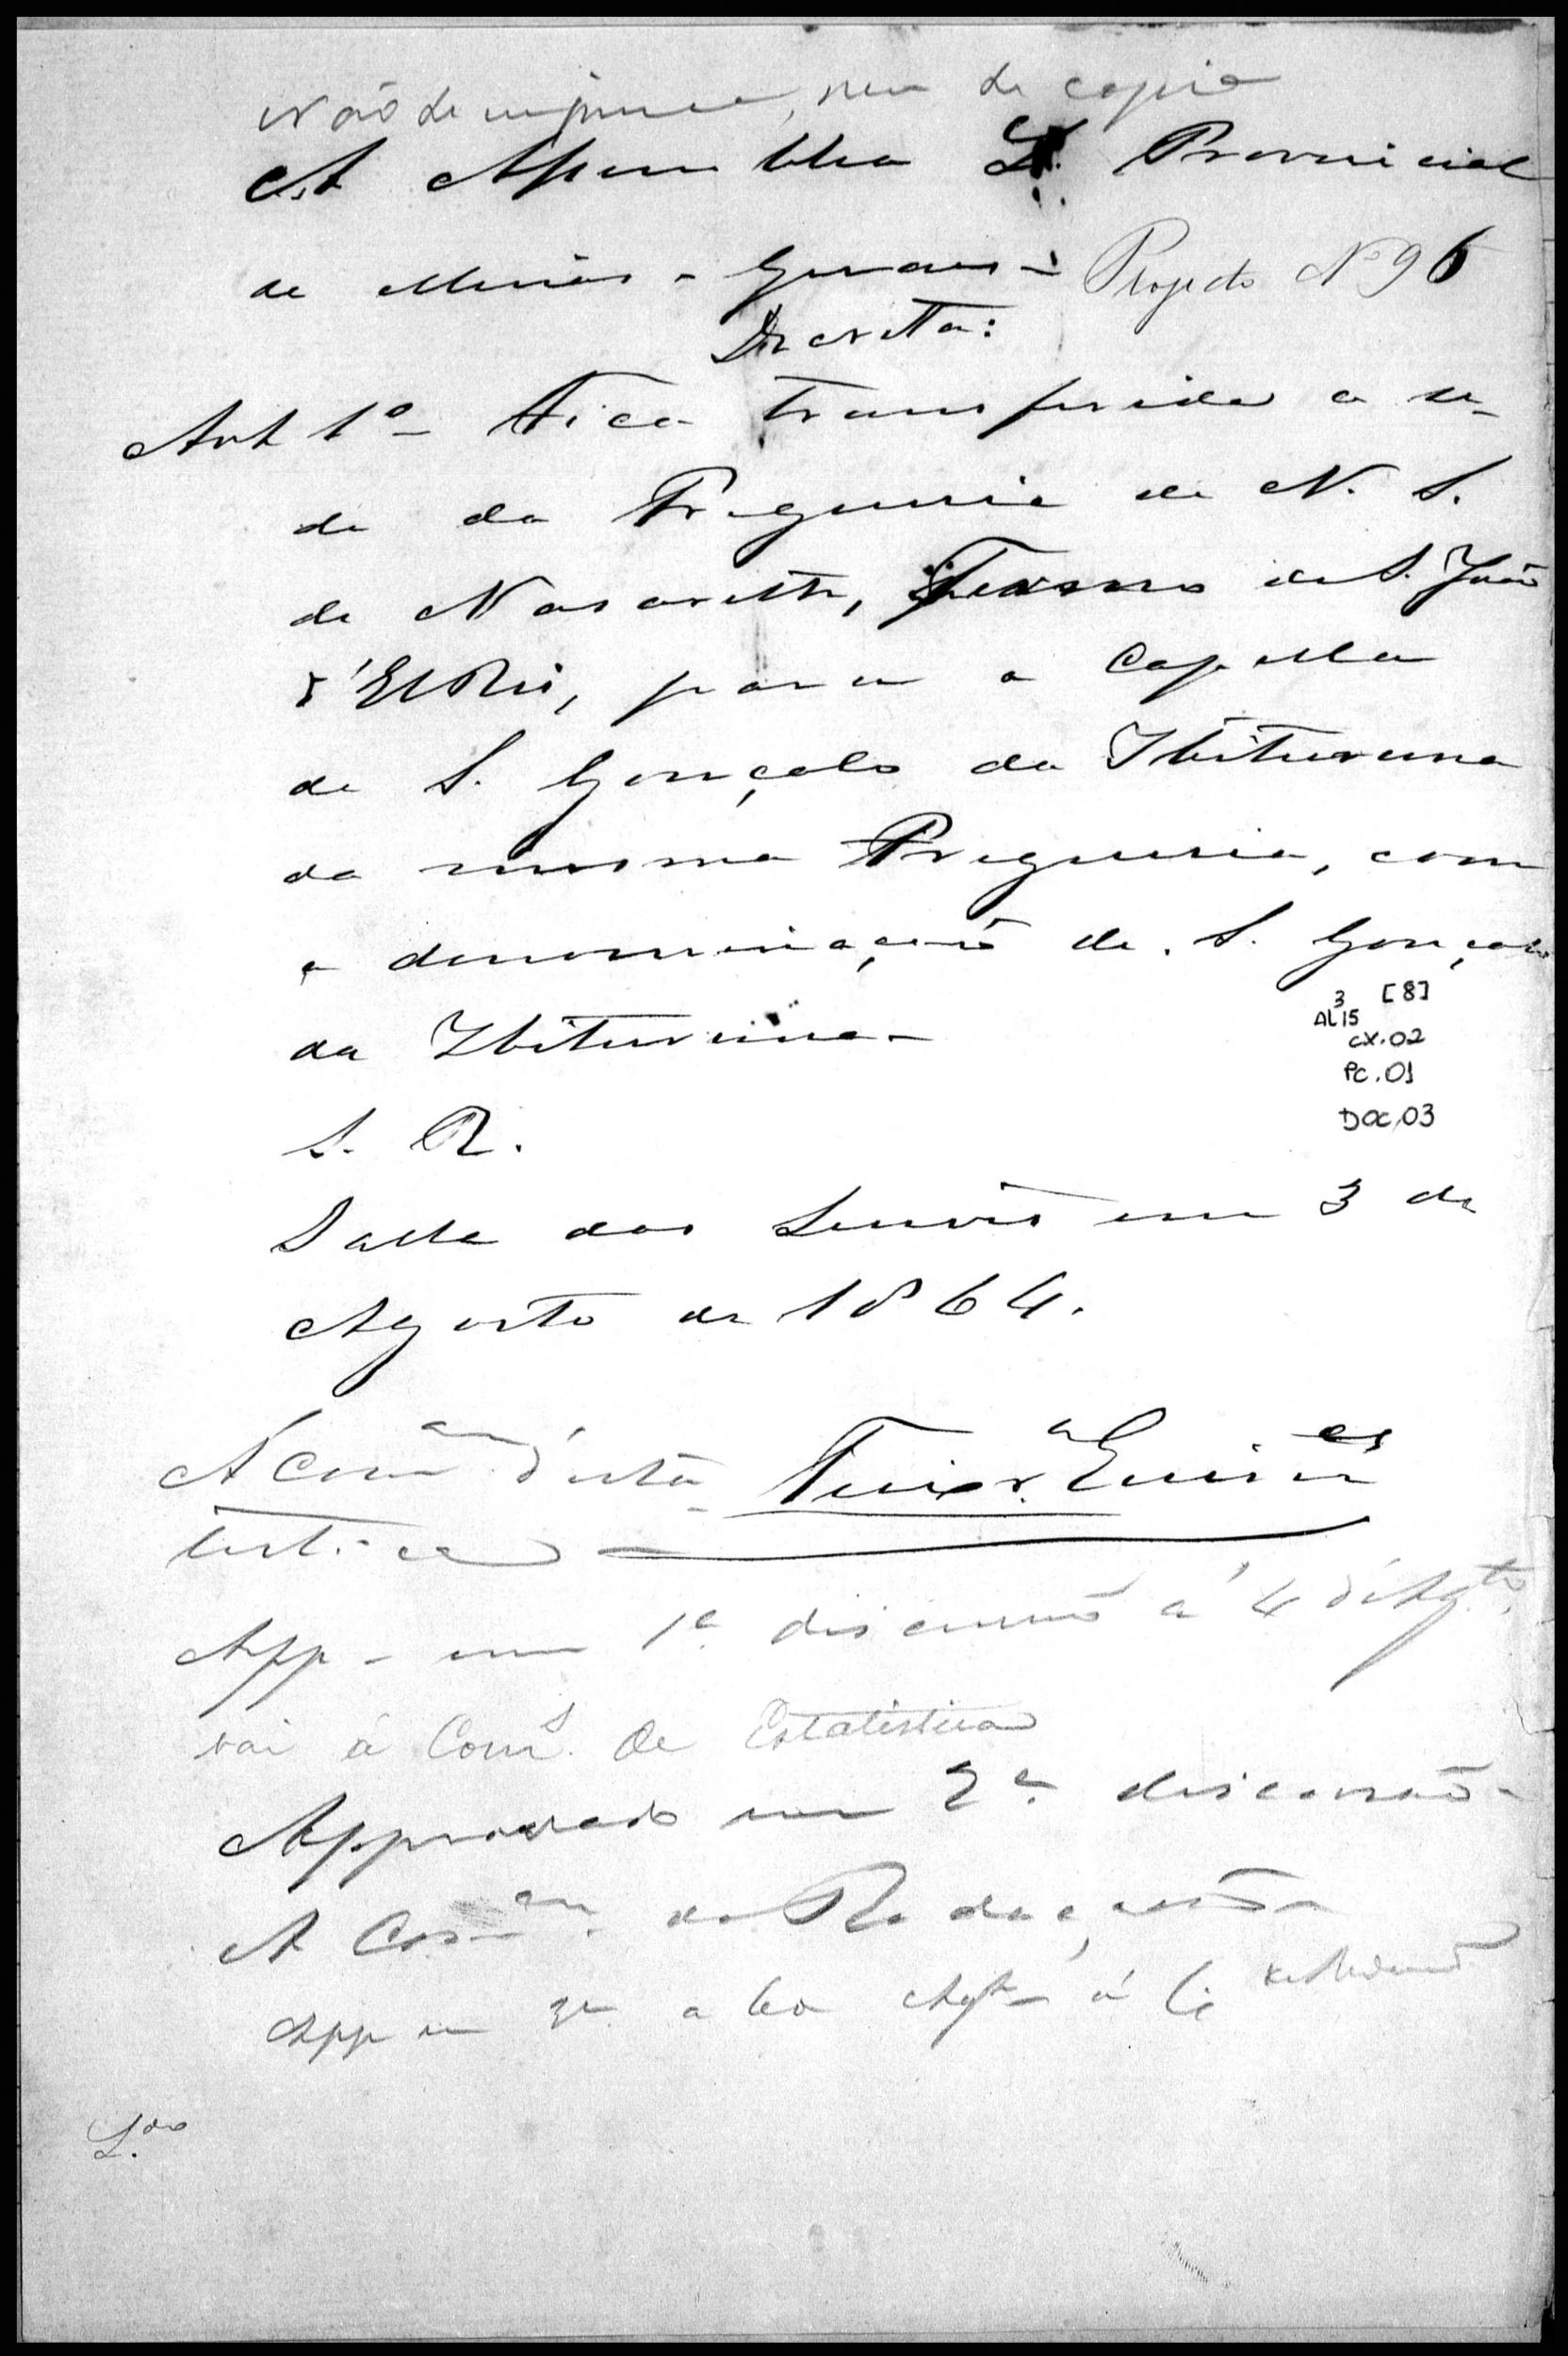 Não se imprime, nem de copia
A Assemblea L. Provincial
de Minas-Geraes - Projecto Nº 96
Decretta:
Art 1º - Fica transferida a se-
de da Freguesia de N. S.
de Nasareth, Termo de S. João
d'ElRei, para a Capella
de S. Gonçalo da Ibituruna
da mesma Freguesia, com
a denominação de S. Gonçalo
da Ibituruna -
3 [8]
AL 15
cx.02
Pc.01
DOC.03
S. R.
Salla das Sessões em 3 de
Agosto de 1864.
A Com.am d'esta-
tistica
App - em 1ª discussão a 4 d'Agto.
vai á Com. de Estatistica
Approvado em 2ª discussão -
A Com.am de Redacção -
App em 3ª a Agto - á de Redacção